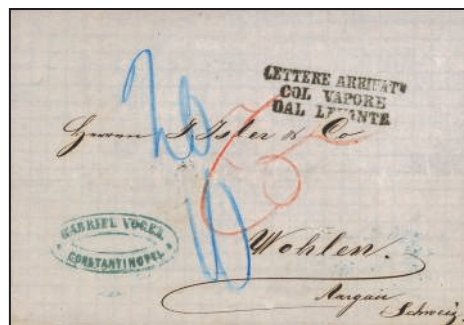 LETTERE ARRIVATE
COL VAPORE
DAL LEVANTE
Herren J. Isler & Co
GABRIEL VOGEL
CONSTANTINOPEL
Wohlen.
Aargau
Schweiz.